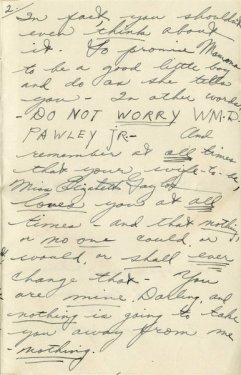 2/
In fact, you shouldn't
even think about
it. So promise Mama
to be a good little boy
and do as she tells
you - In other words
- DO NOT WORRY WM. D.
PAWLEY JR - And
remember at all times
that your wife-to-be,
Miss Elizabeth Taylor
loves you at all
times - and that nothing
or no one could, or
would, or shall ever
change that - You
are mine, Darling, and
nothing is going to take
you away from me
nothing.